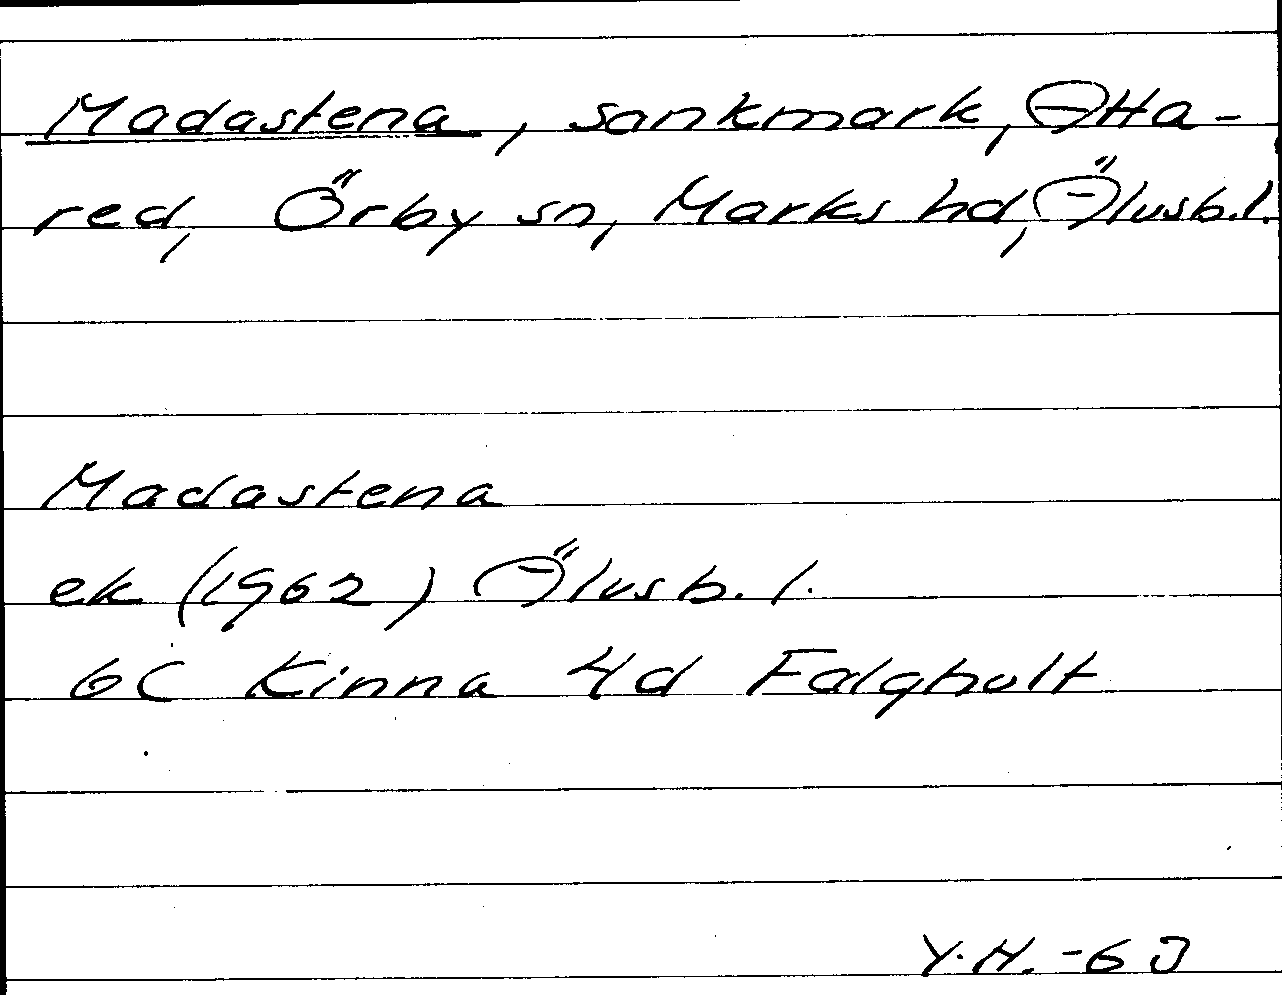 Madastena, sankmark, Atta-
red, Örby sn, Marks hd, Älvsb.l.
Madastena
ek (1962) Älvsb. l.
6C Kinna 4d Falgholt
Y.H. -63